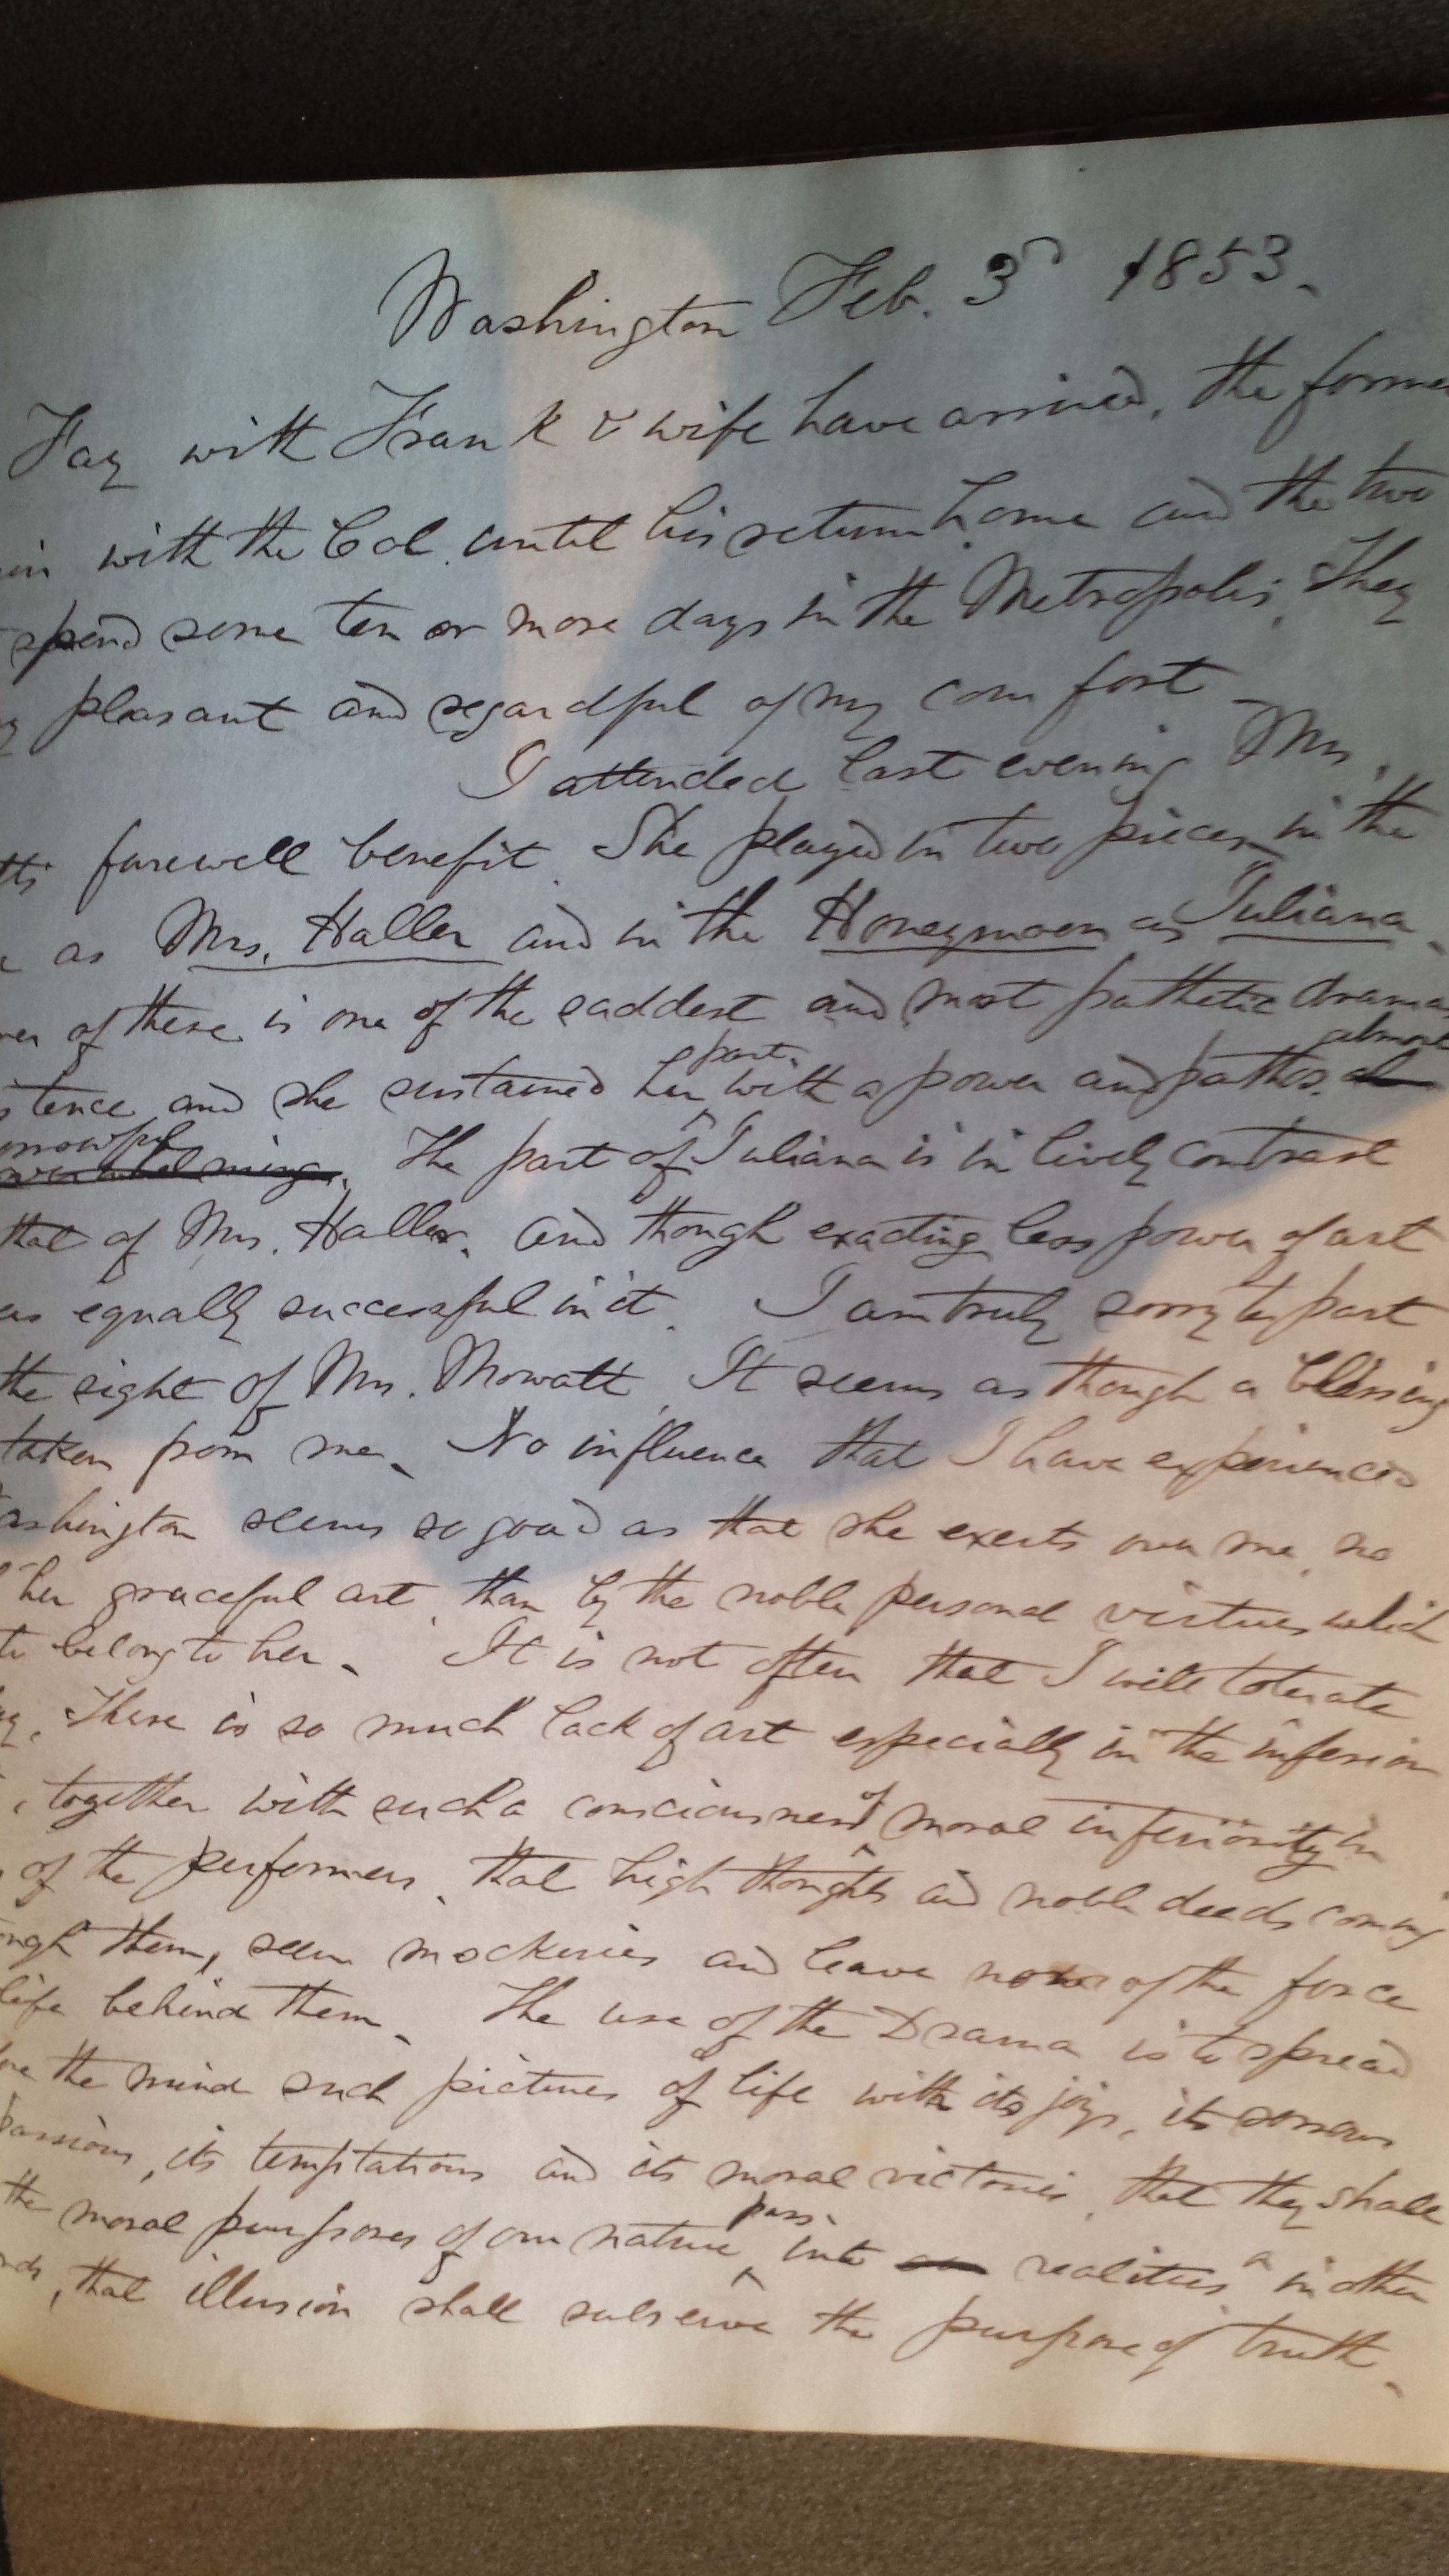 Washington Feb. 3d 1853.
Fay with Frank & wife have arrived, the former
with the Col. until his return home and the two
spend some ten or more days in the Metropolis. They
pleasant and regardful of my comfort
I attended last evening Mrs.
farewell benefit. She played in two pieces, in the
as Mrs. Haller and in the Honeymoon as Juliana.
of these is one of the saddest and most pathetic dramas
almost
part
and she sustained her with a power and pathos al
overwhelming. The part of Juliana is in lively contrast
that of Mrs. Haller, and though exacting less power of art
equally successful in it. I am truly sorry to part
the sight of Mrs. Mowatt. It seems as though a blessing
taken from me. No influence that I have experienced
ashington seems so good as that she exerts over me, no
her graceful art, than by the noble personal virtues which
to belong to her. It is not often that I will tolerate
There is so much lack of art especially in the inferior
together with such a consciousness of moral inferiority in
of the performers, that high thoughts and noble deeds coming
ough them, seem mockeries and leave none of the force
life behind them. The use of the Drama is to spread
the mind such pictures of life with its joys, its sorrows
passions, its temptations and its moral victories, that they shall
pass
the moral purposes of our nature into realities, in other
that illusion shall subserve the purpose of truth.